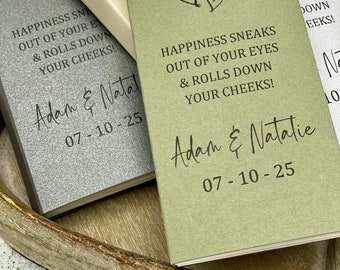 HAPPINESS SNEAKS
OUT OF YOUR EYES
& ROLLS DOWN
YOUR CHEEKS!
Adam & Natalie
07 - 10 - 25
HAPPINESS SNEAKS
OUT OF YOUR EYES
& ROLLS DOWN
YOUR CHEEKS!
Adam & Natalie
07 - 10 - 25